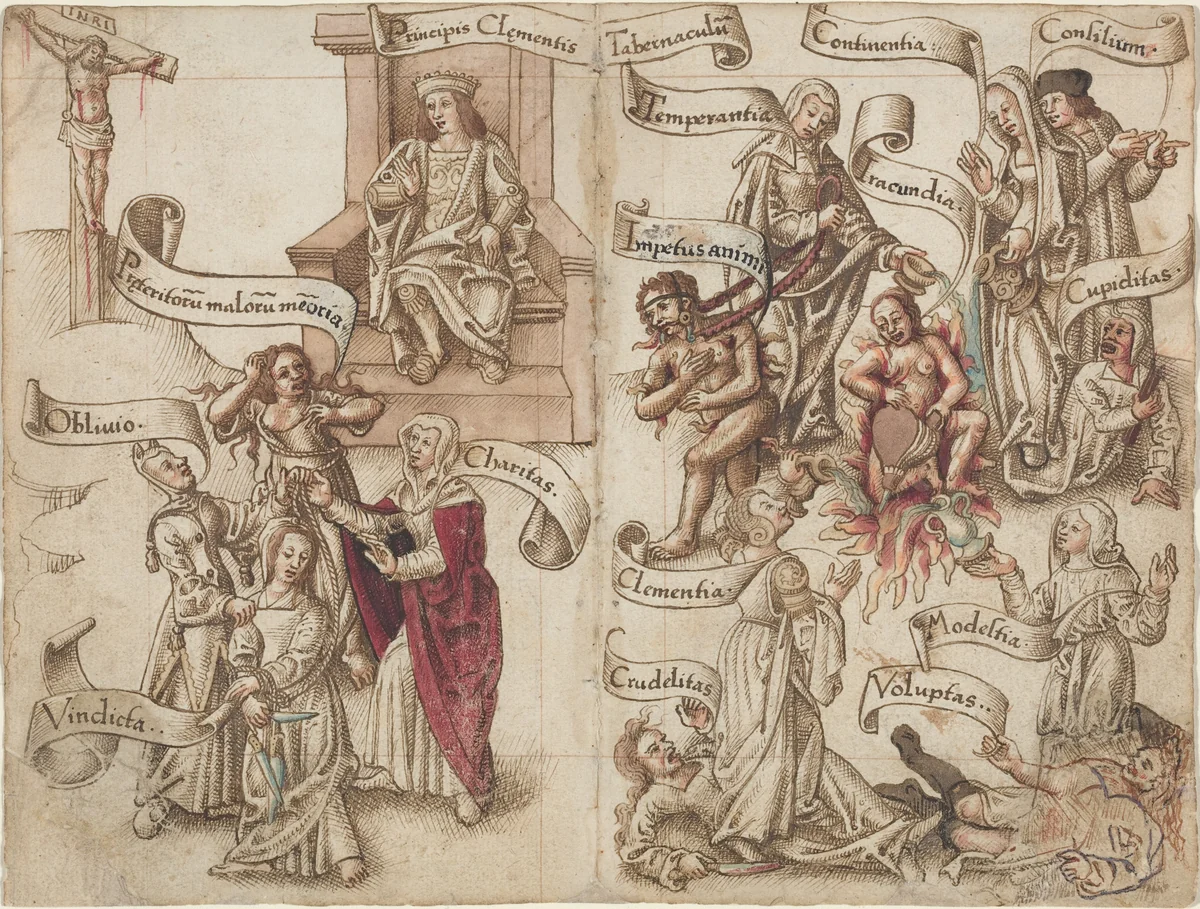 INRI
Principis Clęmentis Tabernaculū
Continentia.
Consilium.
Temperantia
Iracundia.
Impetus animi
Cupiditas.
Pręteritorū malorū meōria
Oblivio.
Charitas.
Clementia.
Modestia.
Vindicta..
Crudelitas
Voluptas..